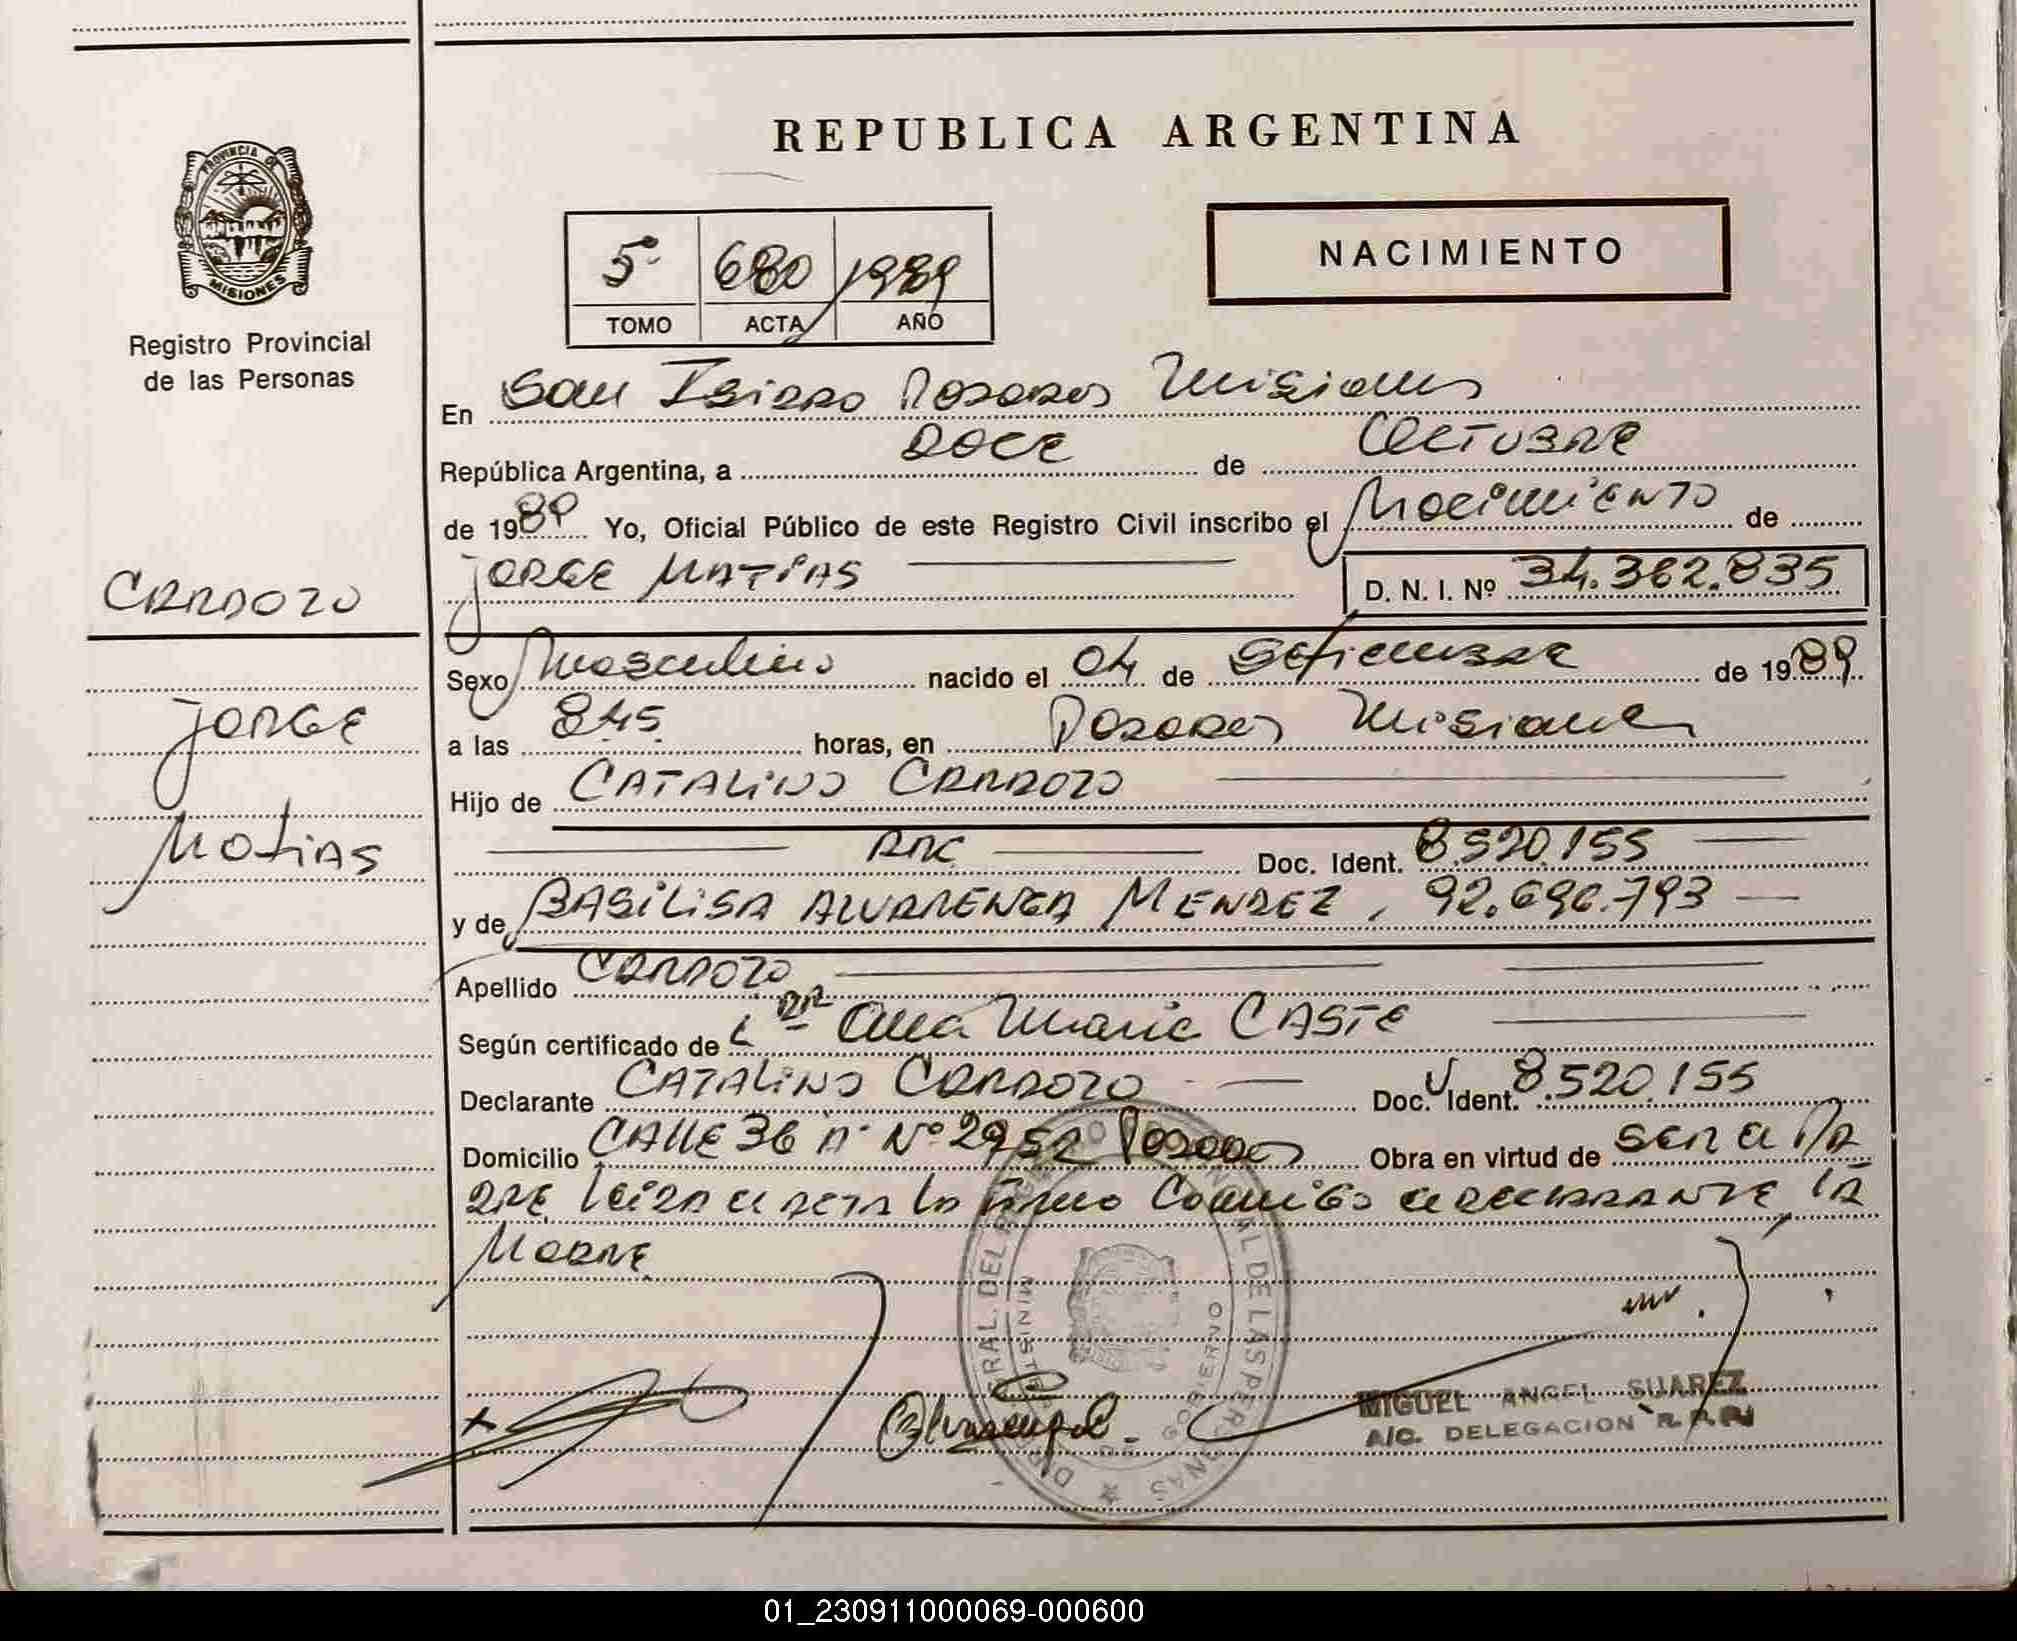 REPUBLICA ARGENTINA
PROVINCIA DE
MISIONES
Registro Provincial
de las Personas
5º 680 1989
TOMO ACTA AÑO
NACIMIENTO
En San Isidro Posadas Misiones
República Argentina, a DOCE de OCTUBRE
de 1989 Yo, Oficial Público de este Registro Civil inscribo el Nacimiento de
JORGE MATIAS D. N. I. Nº 34.362.835
CARDOZO
JORGE
Matias
Sexo Masculino nacido el 04 de Setiembre de 1989
a las 8.45 horas, en Posadas Misiones
Hijo de CATALINO CARDOZO
ARG Doc. Ident. 8.520.155
y de BASILISA ALVARENGA MENDEZ, 92.696.793
Apellido CARDOZO
Según certificado de Ana Maria CASTE
Declarante CATALINO CARDOZO Doc. Ident. 8.520.155
Domicilio CALLE 36 A Nº 2952 Posadas Obra en virtud de ser el PA
DRE leida el acta la firma Conmigo el DECLARANTE, LA
MADRE
MIGUEL ANGEL SUAREZ
A/C. DELEGACION R.P.P.
01_230911000069-000600